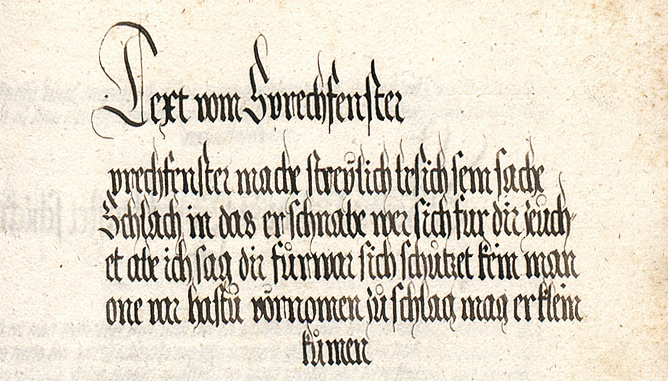 Text vom Sprechfenster
prechfenster mache streylich besich sein sache
Schlach in das er schnabe wer sich fur dir zeuch-
et abe ich sag dir fürwar sich schützet kein man
one var hastu vornomen zu schlag mag er klein
kůmen